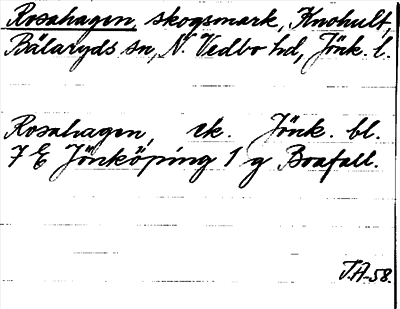 Rosahagen, skogsmark, Knohult,
Bälaryds sn, N. Vedbo hd, Jönk. l.
Rosahagen, ek. Jönk. bl.
7 E Jönköping 1 g Boafall.
J.A-58.